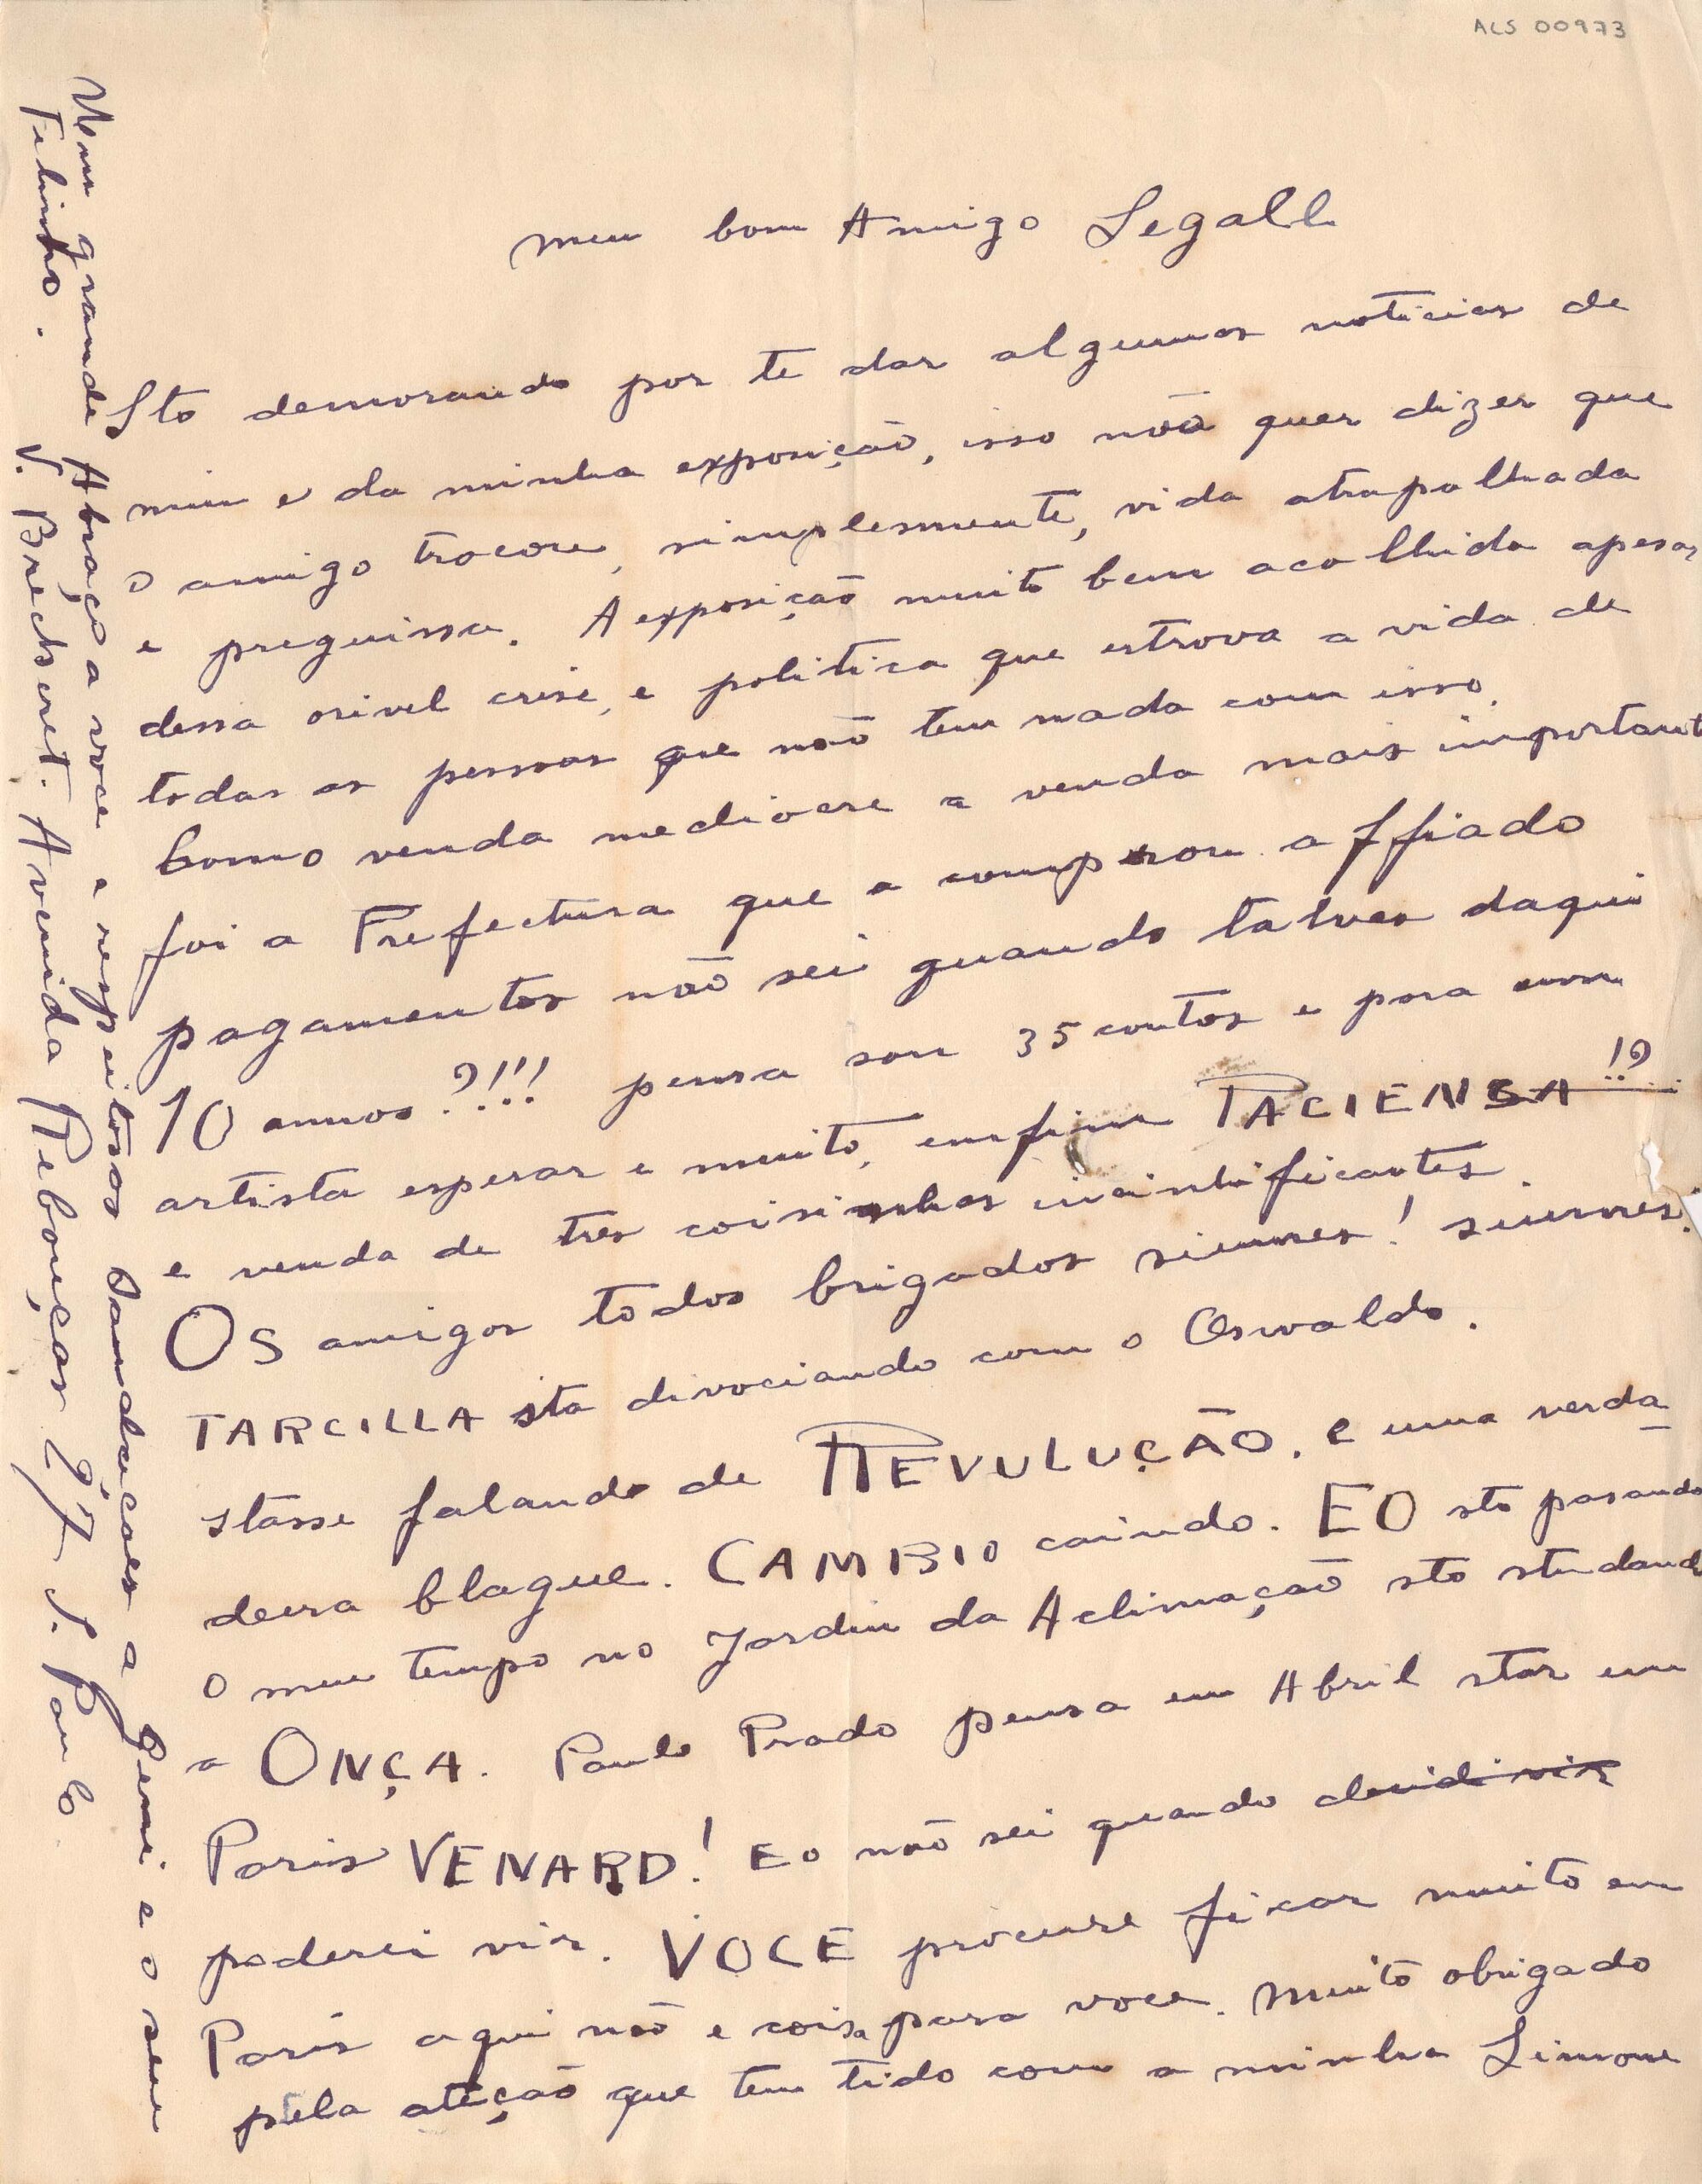 ALS 00973
meu bom Amigo Segall
Sto demorando por te dar algumas noticias de
mim e da minha exposição, isso não quer dizer que
o amigo trocore, simplesmente, vida atrapalhada
e preguissa. A exposição muito bem acolhida apesar
dessa orivel crise, e politica que estrova a vida de
todas as pessoas que não tem nada com isso.
Como venda mediocre a venda mais important
foi a Prefectura que a comprou affiado
pagamentos não sei quando talves daqui
10 annos?!!! pensa sou 35 contos e para um
artista esperar e muito, emfim PACIENSA!?
e venda de tres coisinhas insinhificantes.
OS amigos todos brigados siumes! siumes!
TARCILLA sta divociando com o Oswaldo.
stasse falando de REVULUÇÃO. e uma verda
deira blague. CAMBIO caindo. EO sto pasando
o meu tempo no Jardin da Aclimação sto studando
a ONÇA. Paulo Prado pensa em Abril star em
Paris VENARD! EO não sei quando decidi vir
poderei vir. VOCE procure ficar muito em
Paris aqui não e coisa para voce. Muito obrigado
pela ateção que tem tido com a minha Simone
Meu grande Abraço a voce e respeitosos saudaçoes a Geni e o seu
Filinho. V. Brecheret. Avenida Rebouças 27 S. Paulo